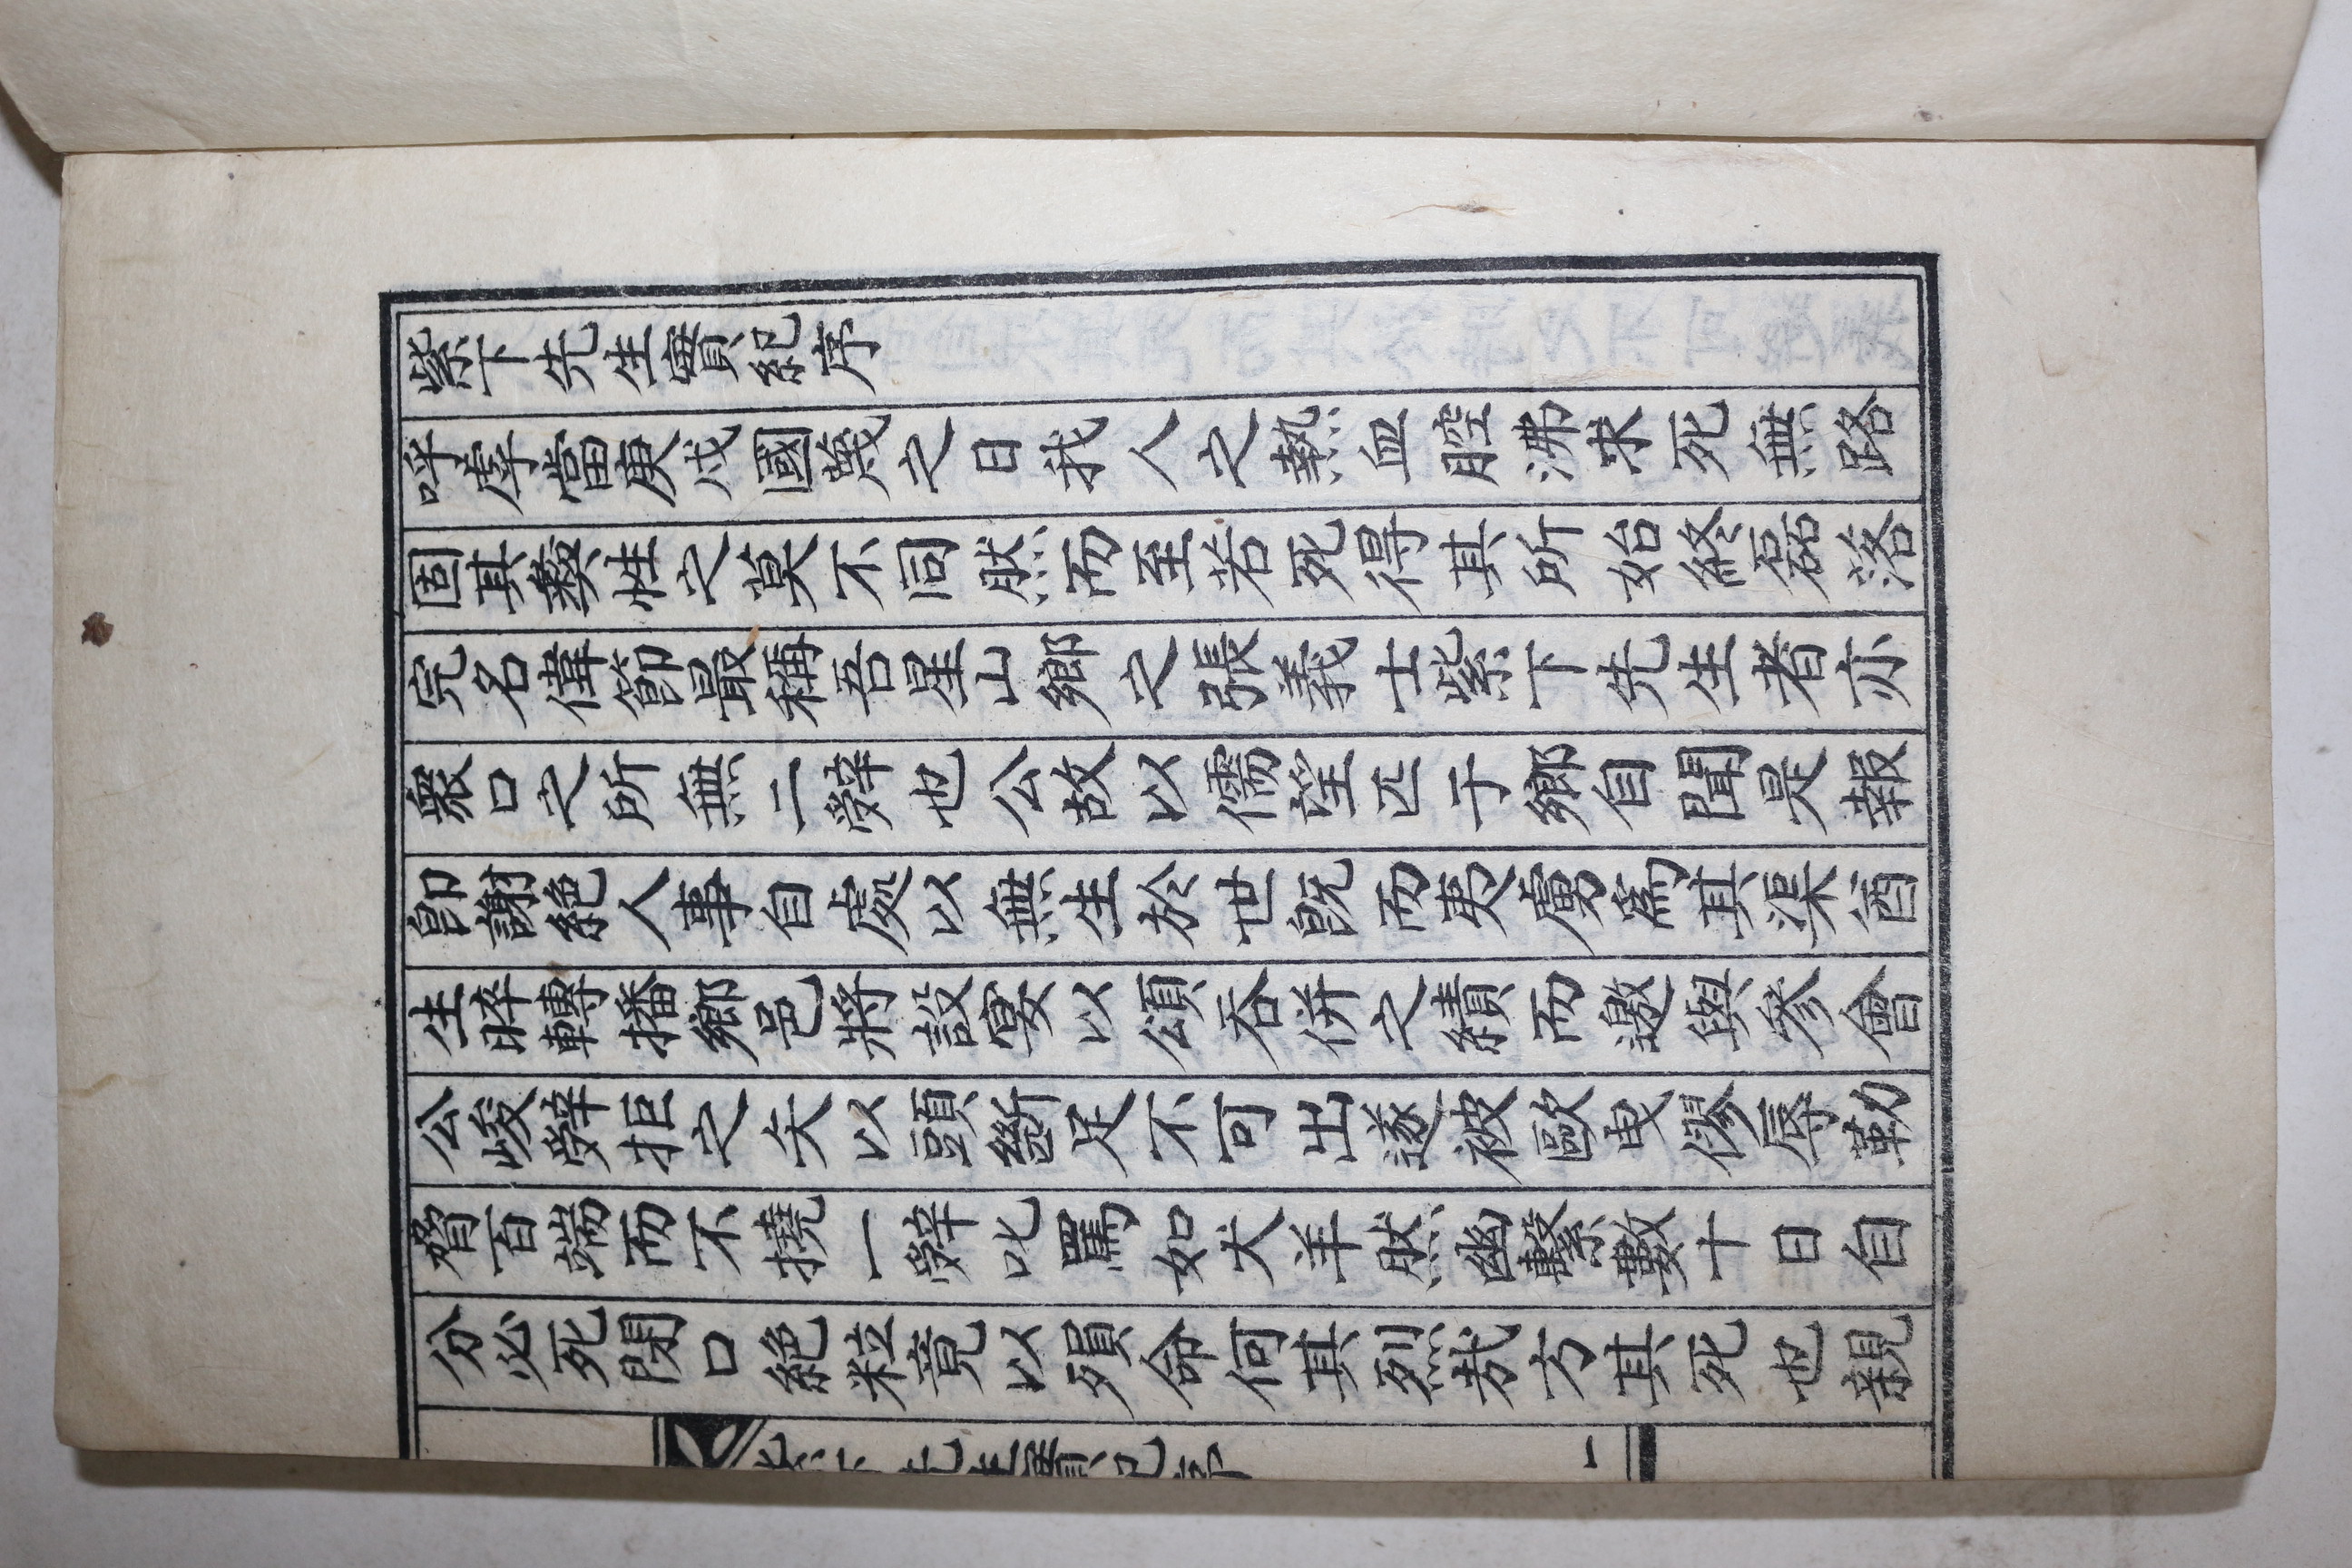 紫下先生實紀序
呼虖當庚戍國蔑之日我人之熱血腔沸求死無路
固其彜性之莫不同然而至若死得其所始終磊落
完名偉節最稱吾星山鄉之張義士紫下先生者亦
衆口之所無二辭也公故以儒望匹于鄉自聞是報
卽謝絶人事自處以無生於世旣而夷虜爲其渠酋
生晬轉播鄉邑將設宴以頌吞併之績而邀與參會
公峻辭拒之矢以頭斷足不可出遂被歐曳僇辱勒
脅百端而不撓一辭叱罵如犬羊然幽繫數十日自
分必死閉口絶粒竟以殞命何其烈㢤方其死也親
紫下先生實紀序
一